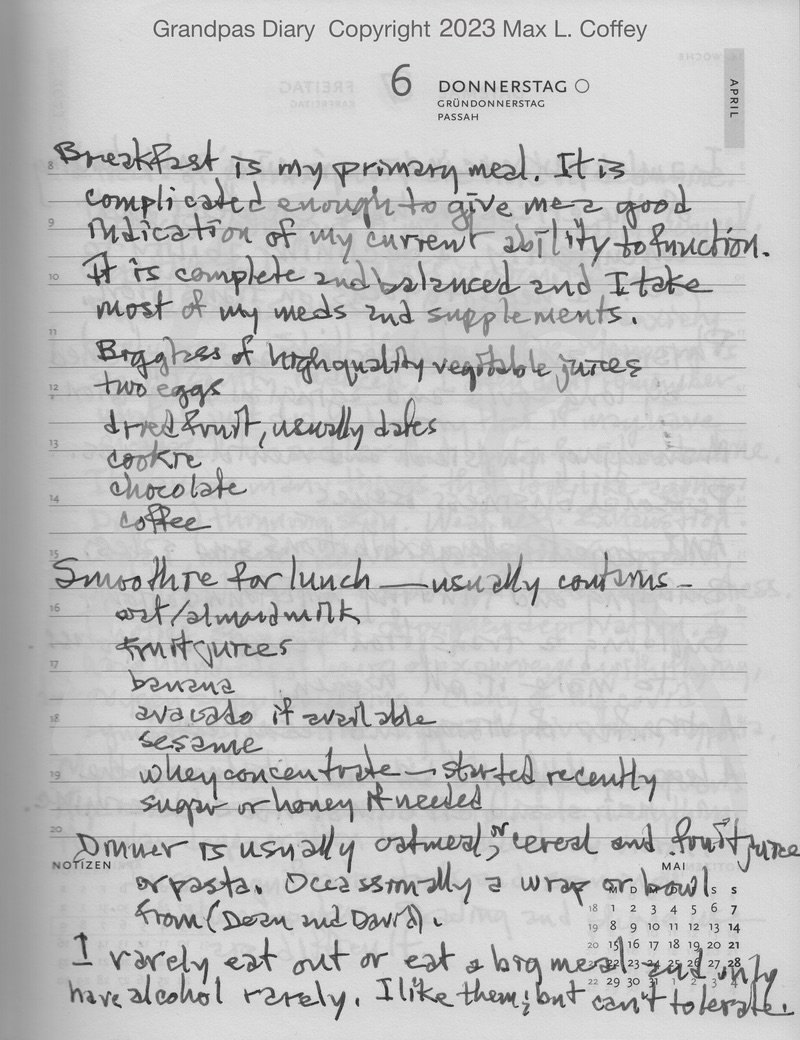 Grandpas Diary Copyright 2023 Max L. Coffey
6 DONNERSTAG
GRÜNDONNERSTAG
PASSAH
APRIL
Breakfast is my primary meal. It is
8
complicated enough to give me a good
9
indication of my current ability to function.
10
It is complete and balanced and I take
most of my meds and supplements.
11
Big glass of high quality vegitable juices
12
two eggs
dried fruit, usually dates
13
cookie
chocolate
14
coffee
15
Smoothie for lunch — usually contains -
16
oat/almond milk
fruit juices
17
banana
18
avacado if available
sesame
19
whey concentrate — started recently
sugar or honey if needed
20
Dinner is usually oatmeal, or cereal and fruit juice
NOTIZEN
MAI
or pasta. Occassionally a wrap or bowl
M D M D F S S
18 1 2 3 4 5 6 7
from (Dean and David).
19 8 9 10 11 12 13 14
20 15 16 17 18 19 20 21
I rarely eat out or eat a big meal and only
21 22 23 24 25 26 27 28
have alcohol rarely. I like them; but can't tolerate.
22 29 30 31 1 2 3 4